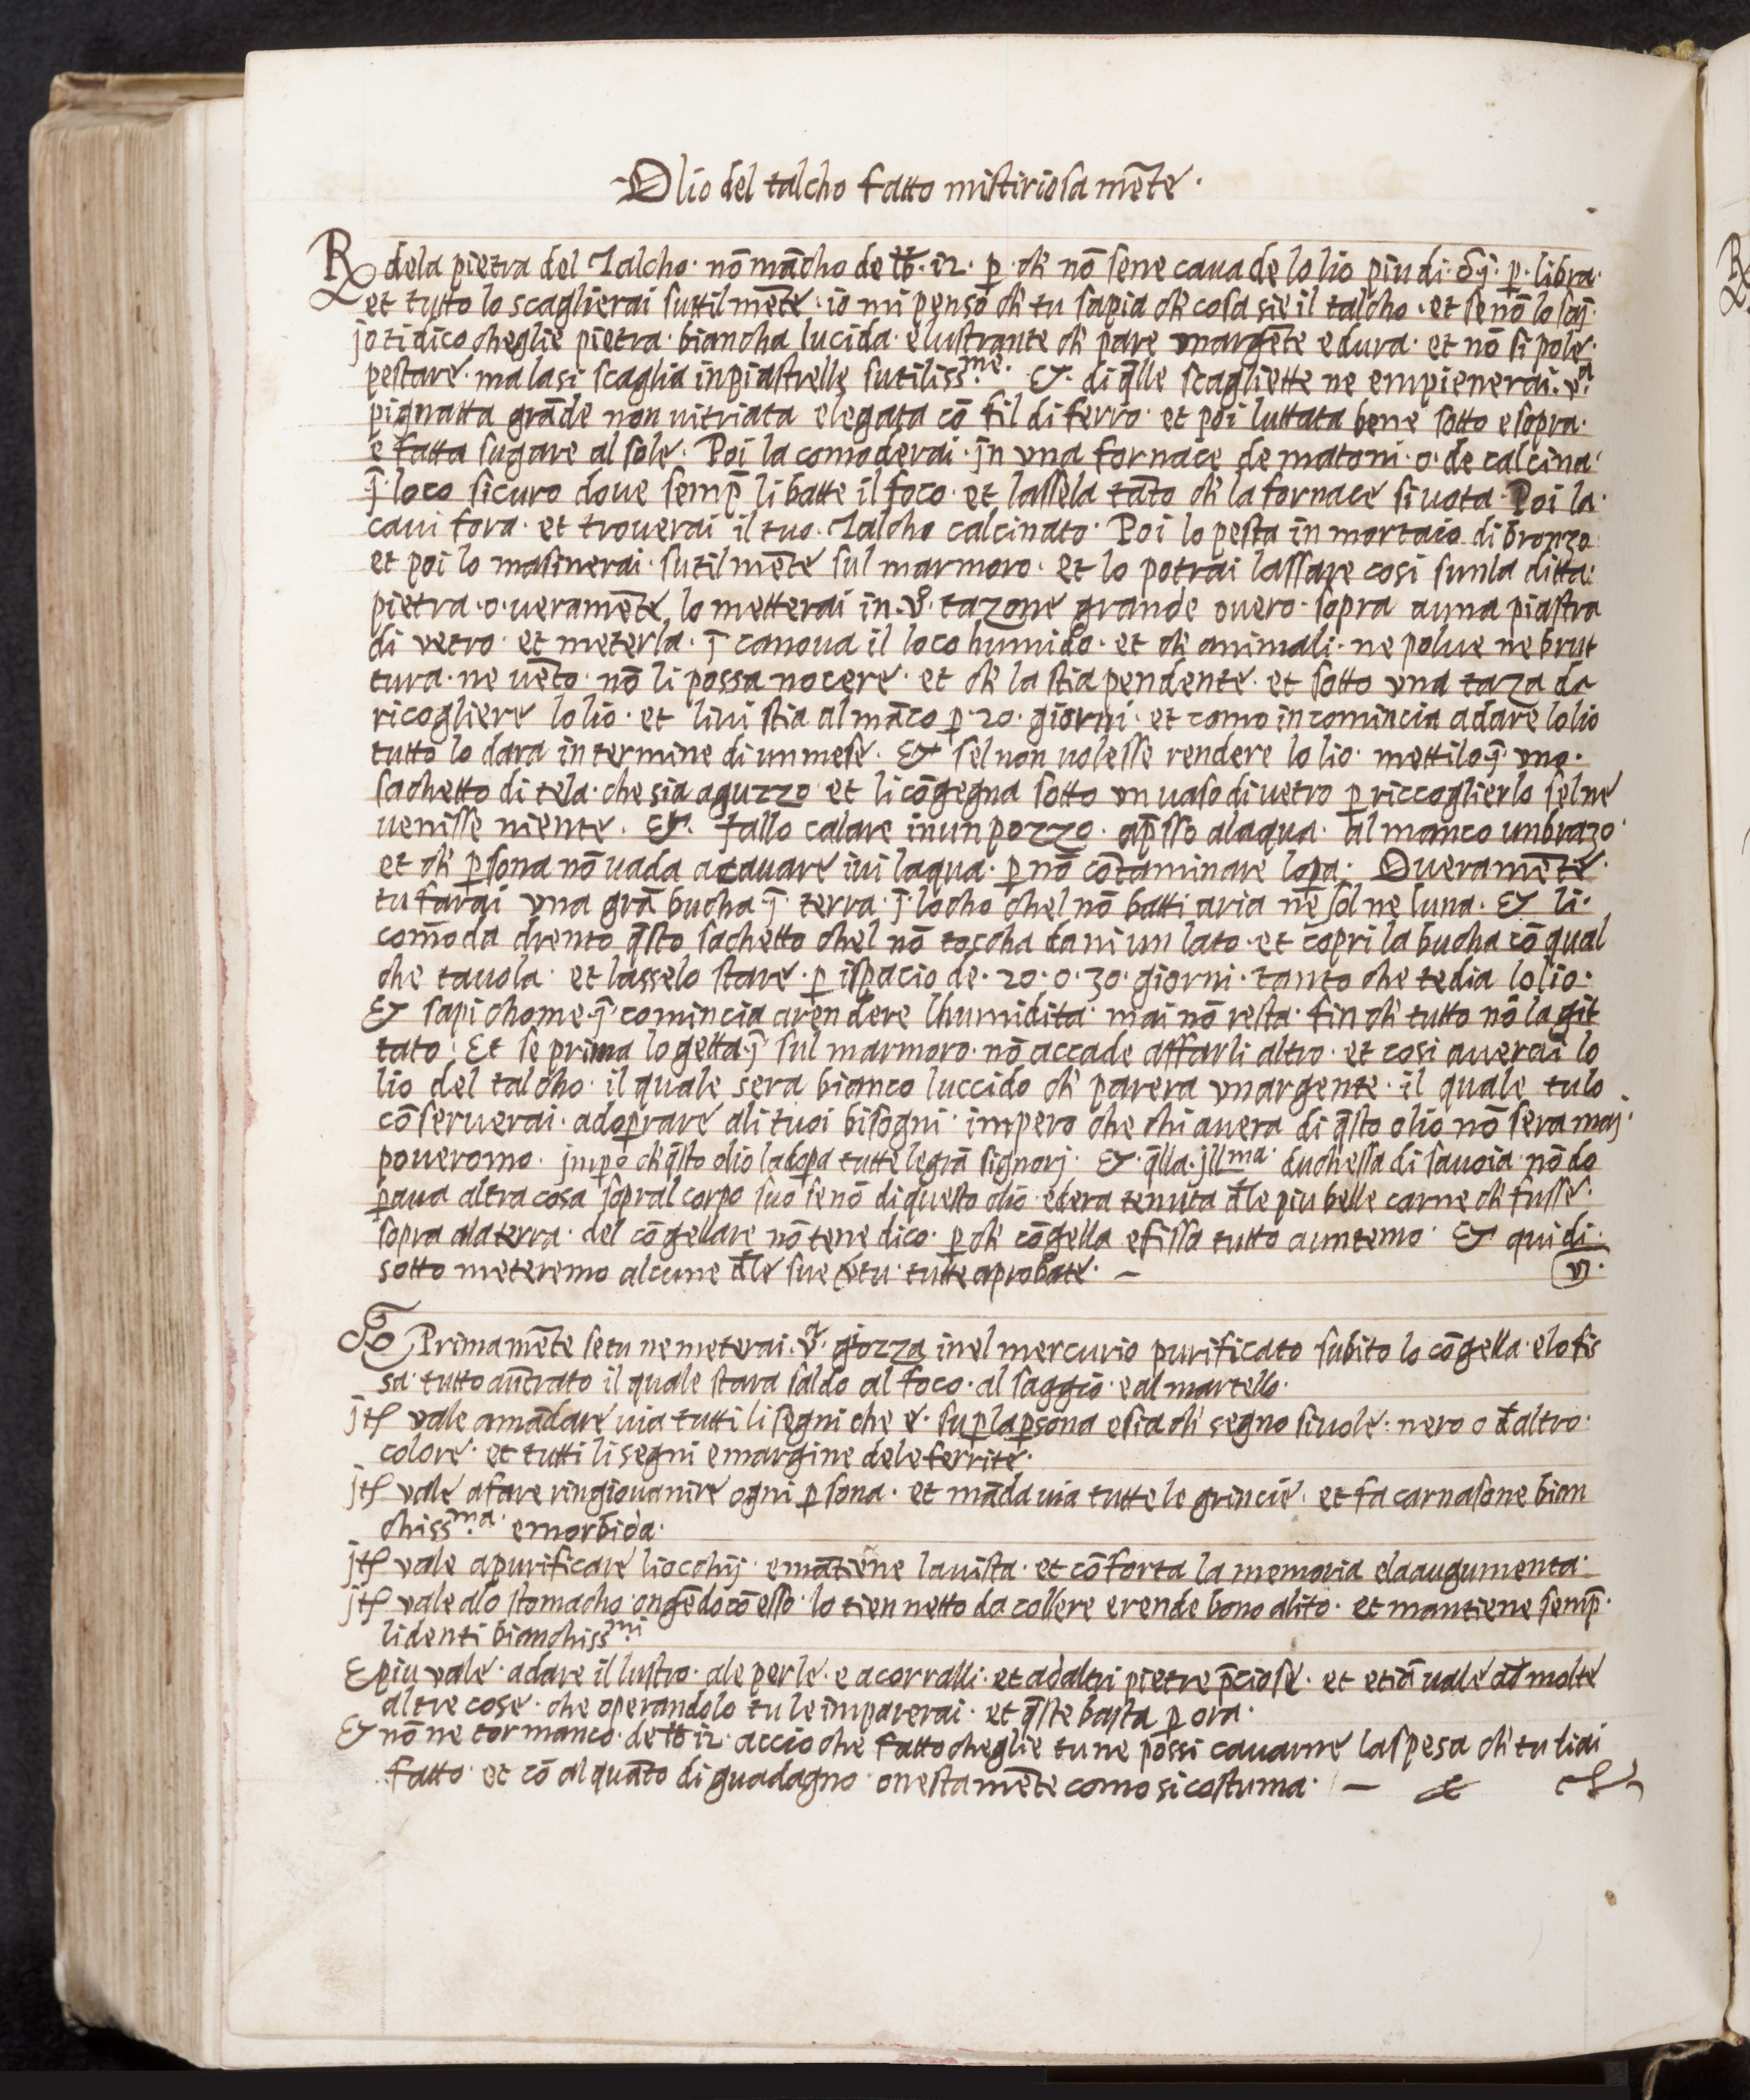 Olio del talcho fatto mistiriosa mẽte·
R dela pietra del Talcho· nõ mãcho de ℔·12· ꝑ· ch' nõ sene caua de lo lio piu di·℥j· ꝑ· libra·
et tutto lo scaglierai suttil mẽte· io mi penso ch' tu sapia ch' cosa sie il talcho· et se nõ lo saj·
jo ti dico cheglie pietra· biancha lucida· e lustrante ch' pare vnargẽte e dura· et nõ si pole·
pestare· ma lasi scaglia in piastrelle sutiliss.me· &· di q̃lle scagliette ne empienerai·vª·
pignatta grãde non uitriata e legata cõ fil di ferro· et poi luttata bene sotto e sopra·
e fatta sugare al sole· Poi la comoderai· jn vna fornace de matoni· o· de calcina·
j̃· loco sicuro doue semp̃ li batte il foco· et lassela tãto ch' la fornace si uota· Poi la·
caui fora· et trouerai il tuo· Talcho calcinato· Poi lo pesta in mortaio di bronzo·
et poi lo masinerai· sutil mẽte sul marmoro· et lo potrai lassare cosi sunla ditta·
pietra· o· ueramẽte lo metterai in·vª· tazone grande ouero· sopra auna piastra
di vetro· et meterla· j̃ canoua il loco humido· et ch' animali· ne polue ne brut
tura· ne uẽto· nõ li possa nocere· et ch' la stia pendente· et sotto vna taza da
ricogliere lo lio· et liui stia al mãco ꝑ·20· giorni· et como in comincia a dare lo lio
tutto lo dara in termine di un mese· & sel non uolesse rendere lo lio· mettilo j̃· vno·
sachetto di tela· che sia aguzzo et li cõgegna sotto vn uaso di uetro ꝑ riccoglierlo sel ne
uenisse niente· &· fallo calare in un pozzo· ap̃sso alaqua· al manco un brazo·
et ch' ꝑsona nõ uada acauare iui laqua· ꝑ nõ cõtaminare lopa· Oueramẽte·
tu farai vna grã bucha j̃· terra· j̃ locho chel nõ batti aria ne sol ne luna· & li·
comoda drento q̃sto sachetto chel nõ toccha da ni un lato· et copri la bucha cõ qual
che tauola· et lasselo stare· ꝑ ispacio de·20·o·30· giorni· tanto che te dia lo lio·
& sapi chome j̃ comincia arendere lhumidita· mai nõ resta· fin ch' tutto nõ la git
tato· Et se prima lo getta j̃ sul marmoro· nõ accade affarli altro· et cosi auerai lo
lio del talcho· il quale sera bianco luccido ch' parera vnargente· il quale tu lo
cõseruerai· adoꝑrare ali tuoi bisogni· impero che chi auera di q̃sto olio nõ sera maj·
poueromo· jmpo ch' q̃sto olio ladoꝑa tutte le grã signorj· & q̃lla· jllma· duchessa di sauoia nõ do
ꝑaua altra cosa sopral corpo suo se nõ di questo olio· et era tenuta đle piu belle carne ch' fusse·
sopra ala terra· del cõgellare nõ te ne dico· ꝑ ch' cõgella e fissa tutto auntemo· & qui di·
sotto meteremo alcune đle sue v̾tu· tutte aprobate· –
Primamẽte se tu ne meterai·vª· giozza inel mercurio purificato subito lo cõgella· e lo fis
sa· tutto aũtrato il quale stara saldo al foco· al saggio· e al martello·
jtẽ vale a mãdare uia tutti li segni che e· su ꝑ la ꝑsona e sia ch' segno si uole· nero o đaltro·
colore· et tutti li segni e margine dele ferrite·
jtẽ vale a fare ringiouanire ogni ꝑsona· et mãda uia tutte le grincie· et fa carnasone bian
chissma· e morbida·
jtẽ vale a purificare li occhij· e mãtiene la uista· et cõforta la memoria e la augumenta·
jtẽ vale alo stomacho ongẽdo cõ esso· lo tien netto da collere e rende bono alito· et mantiene semp̃·
li denti bianchissmi
E piu vale· a dare il lustro· ale perle· e a corralli· et ad altri pietre p̃ciose· et etiã uale ad molte
altre cose· che operandolo tu le imparerai· et q̃ste basta ꝑ ora·
& nõ ne tor manco· de ℔ 12· accio che fatto cheglie tu ne possi cauarne la spesa ch' tu li ai
fatto· et cõ alquãto di guadagno· onestamẽte como si costuma· – &